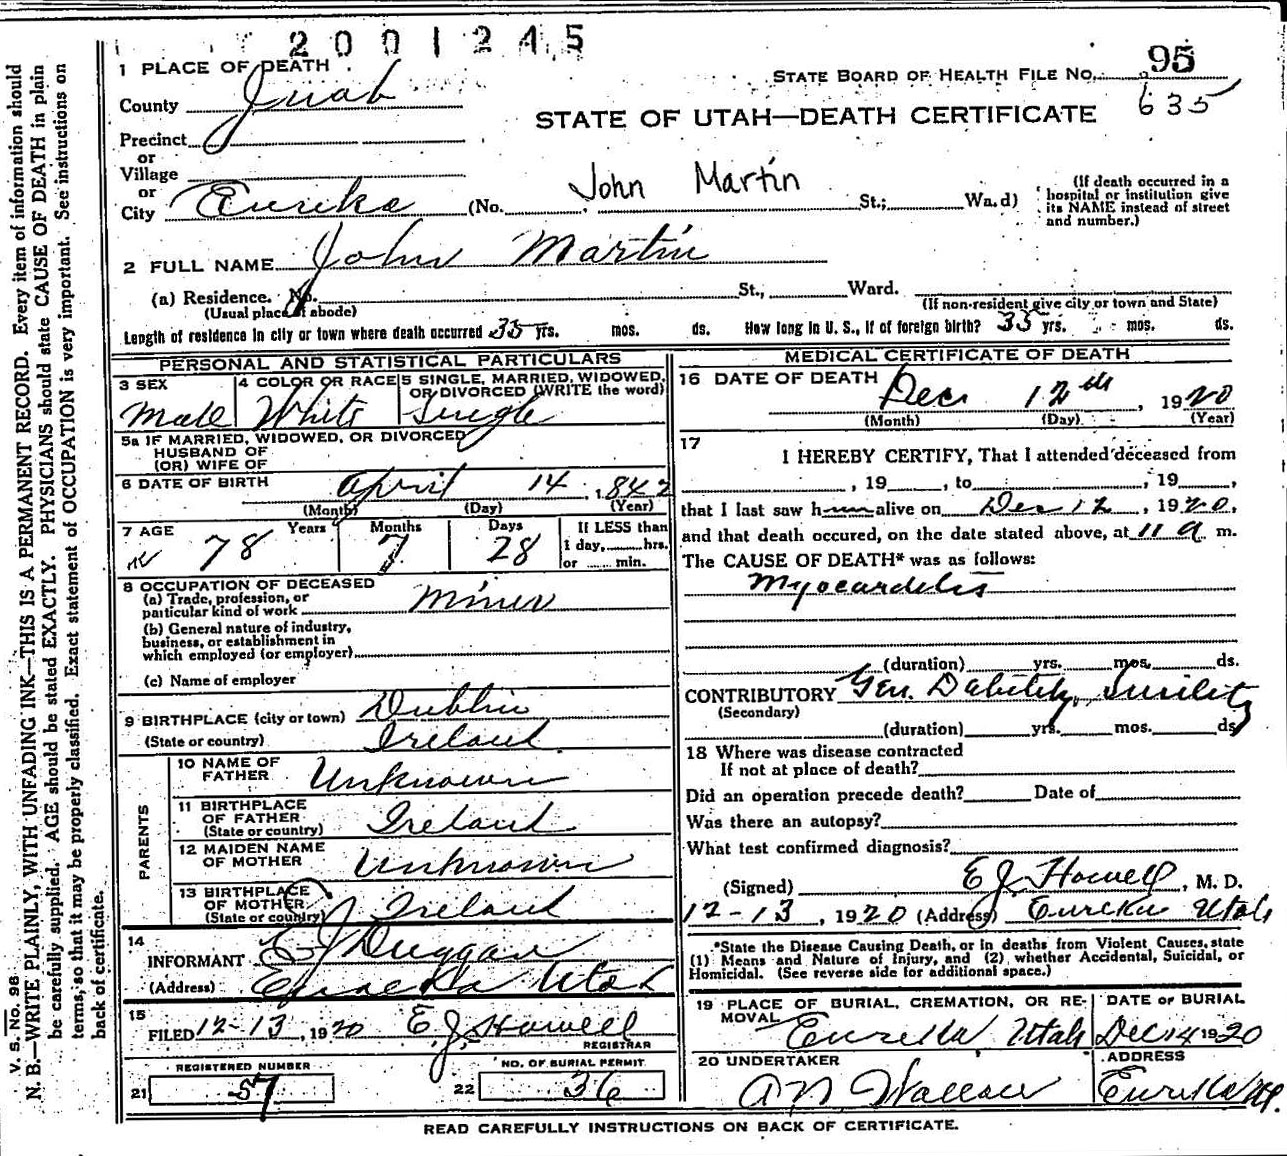 2001245
95
STATE BOARD OF HEALTH FILE NO.
635
STATE OF UTAH—DEATH CERTIFICATE
1 PLACE OF DEATH
County Juab
Precinct
or
Village
or
City Eureka (No. John Martin St.; Wa.d)
(If death occurred in a
hospital or institution give
its NAME instead of street
and number.)
2 FULL NAME John Martin
(a) Residence. No. St., Ward.
(Usual place of abode) (If non-resident give city or town and State)
Length of residence in city or town where death occurred 35 yrs. mos. ds. How long in U. S., if of foreign birth? 35 yrs. mos. ds.
PERSONAL AND STATISTICAL PARTICULARS
3 SEX 4 COLOR OR RACE 5 SINGLE, MARRIED, WIDOWED,
OR DIVORCED (WRITE the word)
Male White Single
5a IF MARRIED, WIDOWED, OR DIVORCED
HUSBAND OF
(OR) WIFE OF
6 DATE OF BIRTH April 14, 1842
(Month) (Day) (Year)
7 AGE Years Months Days If LESS than
78 7 28 1 day, hrs.
or min.
8 OCCUPATION OF DECEASED
(a) Trade, profession, or
particular kind of work Miner
(b) General nature of industry,
business, or establishment in
which employed (or employer)
(c) Name of employer
9 BIRTHPLACE (city or town) Dublin
(State or country) Ireland
PARENTS
10 NAME OF
FATHER Unknown
11 BIRTHPLACE
OF FATHER
(State or country) Ireland
12 MAIDEN NAME
OF MOTHER Unknown
13 BIRTHPLACE
OF MOTHER
(State or country) Ireland
14
INFORMANT E J Duggan
(Address) Eureka Utah
15
FILED 12-13, 1920 E J Howell
REGISTRAR
REGISTERED NUMBER NO. OF BURIAL PERMIT
21 57 22 36
MEDICAL CERTIFICATE OF DEATH
16 DATE OF DEATH Dec 12th, 1920
(Month) (Day) (Year)
17
I HEREBY CERTIFY, That I attended deceased from
, 19 , to , 19 ,
that I last saw h alive on Dec 12, 1920,
and that death occured, on the date stated above, at 11 a m.
The CAUSE OF DEATH* was as follows:
Myocardetis
(duration) yrs. mos. ds.
CONTRIBUTORY Gen. Debility, Senility
(Secondary)
(duration) yrs. mos. ds.
18 Where was disease contracted
If not at place of death?
Did an operation precede death? Date of
Was there an autopsy?
What test confirmed diagnosis?
(Signed) E J Howell, M. D.
12-13, 1920 (Address) Eureka Utah
*State the Disease Causing Death, or in deaths from Violent Causes, state
(1) Means and Nature of Injury, and (2) whether Accidental, Suicidal, or
Homicidal. (See reverse side for additional space.)
19 PLACE OF BURIAL, CREMATION, OR RE-
MOVAL Eureka Utah
DATE OF BURIAL
Dec 14 1920
20 UNDERTAKER
A N Wallace
ADDRESS
Eureka Ut.
READ CAREFULLY INSTRUCTIONS ON BACK OF CERTIFICATE.
V. S. No. 98
N. B.—WRITE PLAINLY, WITH UNFADING INK—THIS IS A PERMANENT RECORD. Every item of information should
be carefully supplied. AGE should be stated EXACTLY. PHYSICIANS should state CAUSE OF DEATH in plain
terms, so that it may be properly classified. Exact statement of OCCUPATION is very important. See instructions on
back of certificate.